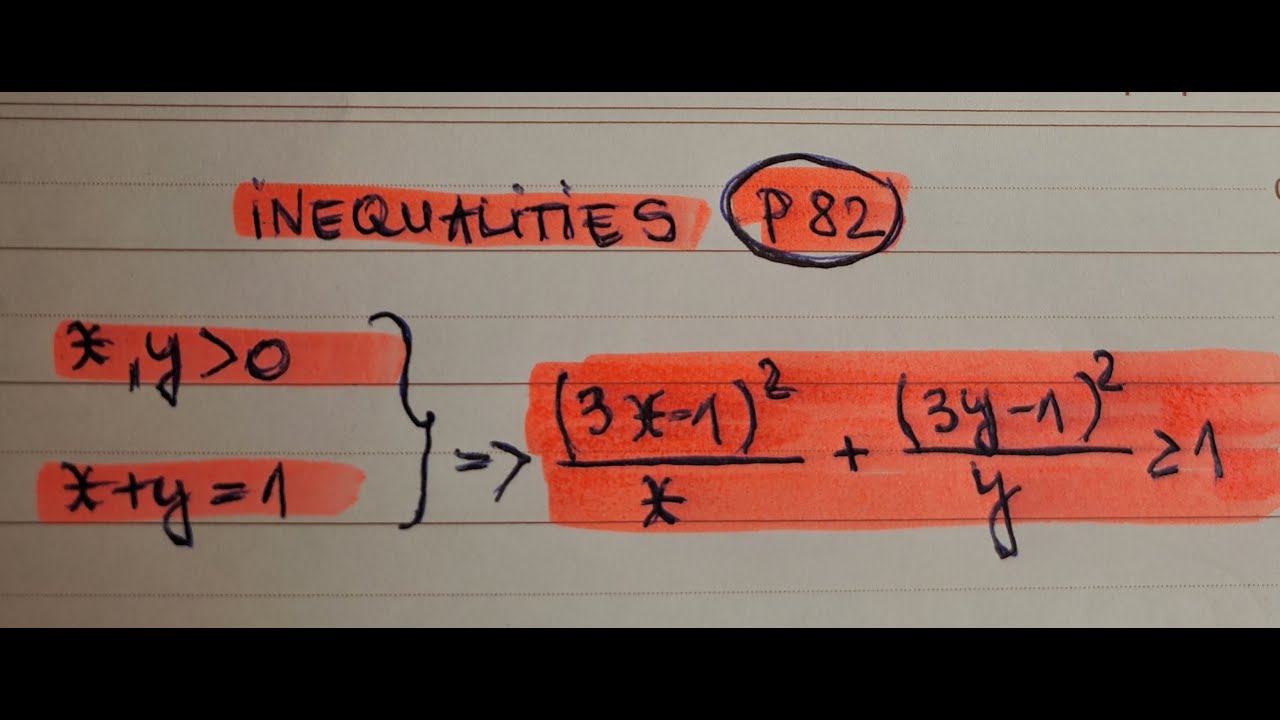 INEQUALITIES P 82
x, y > 0
x + y = 1
} => (3x-1)²/x + (3y-1)²/y ≥ 1